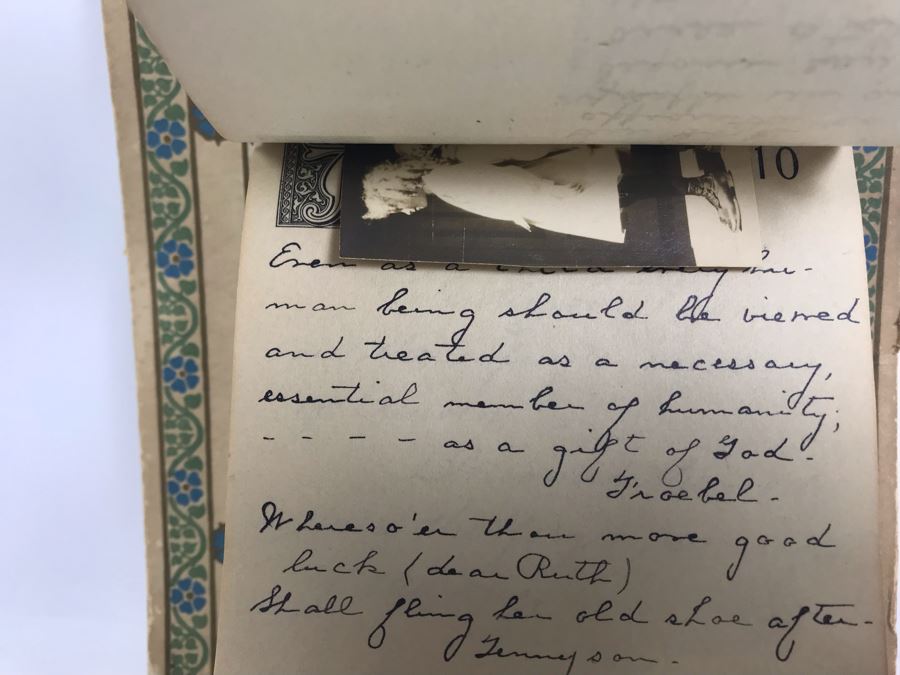 10
Even as a child every hu-
man being should be viewed
and treated as a necessary,
essential member of humanity;
- - - - as a gift of God.
Froebel.
Whereso'er thou move good
luck (dear Ruth)
Shall fling her old shoe after.
Tennyson.